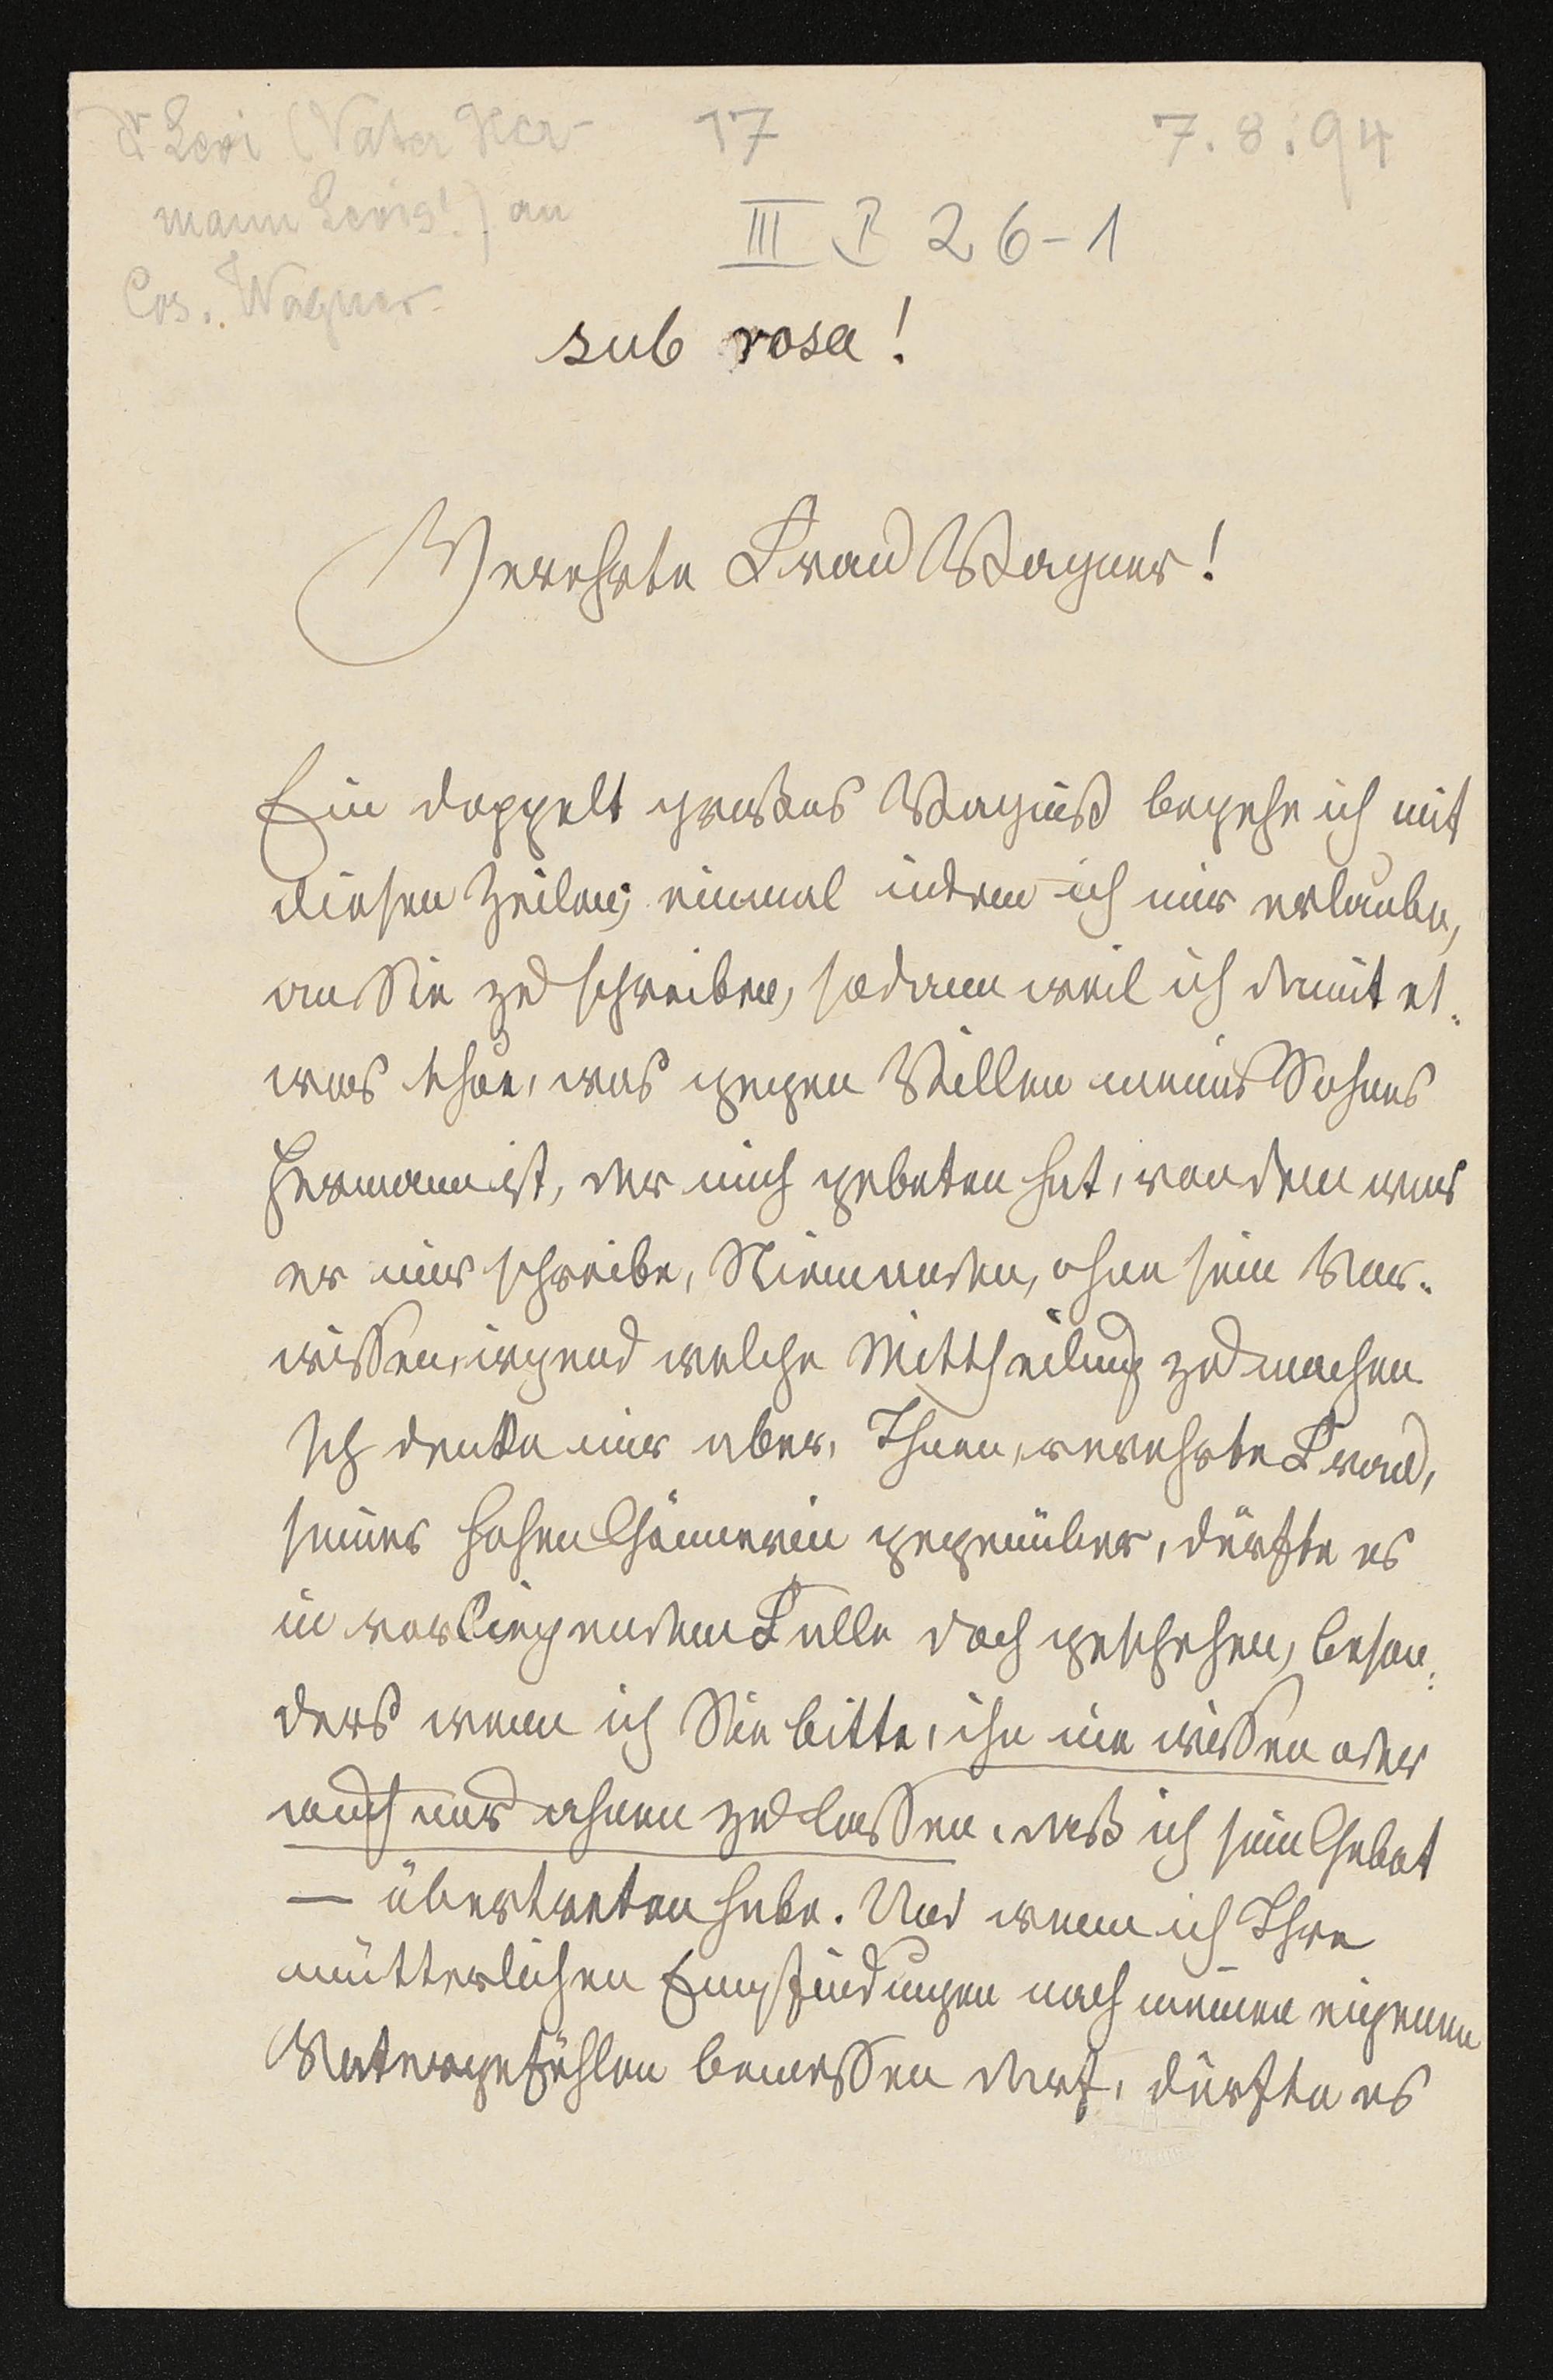 Dr Levi (Vater Her-
mann Levis!) an
Cos. Wagner
17
7.8.94
III B 26-1
sub rosa!
Verehrte Frau Wagner!
Ein doppelt großes Wagniß begehe ich mit
diesen Zeilen; einmal indem ich mir erlaube,
an Sie zu schreiben, sodann weil ich damit et-
was thue, was gegen Willen meines Sohnes
Hermann ist, der mich gebeten hat, von dem was
er mir schreibe, Niemanden, ohne sein Vor-
wissen, irgend welche Mittheilung zu machen
Ich denke mir aber, Ihnen, verehrte Frau,
seiner hohen Gönnerin gegenüber, dürfte es
in vorliegendem Falle doch geschehen, beson-
ders wenn ich Sie bitte, ihn nie wissen oder
auch nur ahnen zu lassen, daß ich sein Gebot
— übertreten habe. Und wenn ich Ihre
mütterlichen Empfindungen nach meinen eigenen
Vatergefühlen bemessen darf, dürfte es